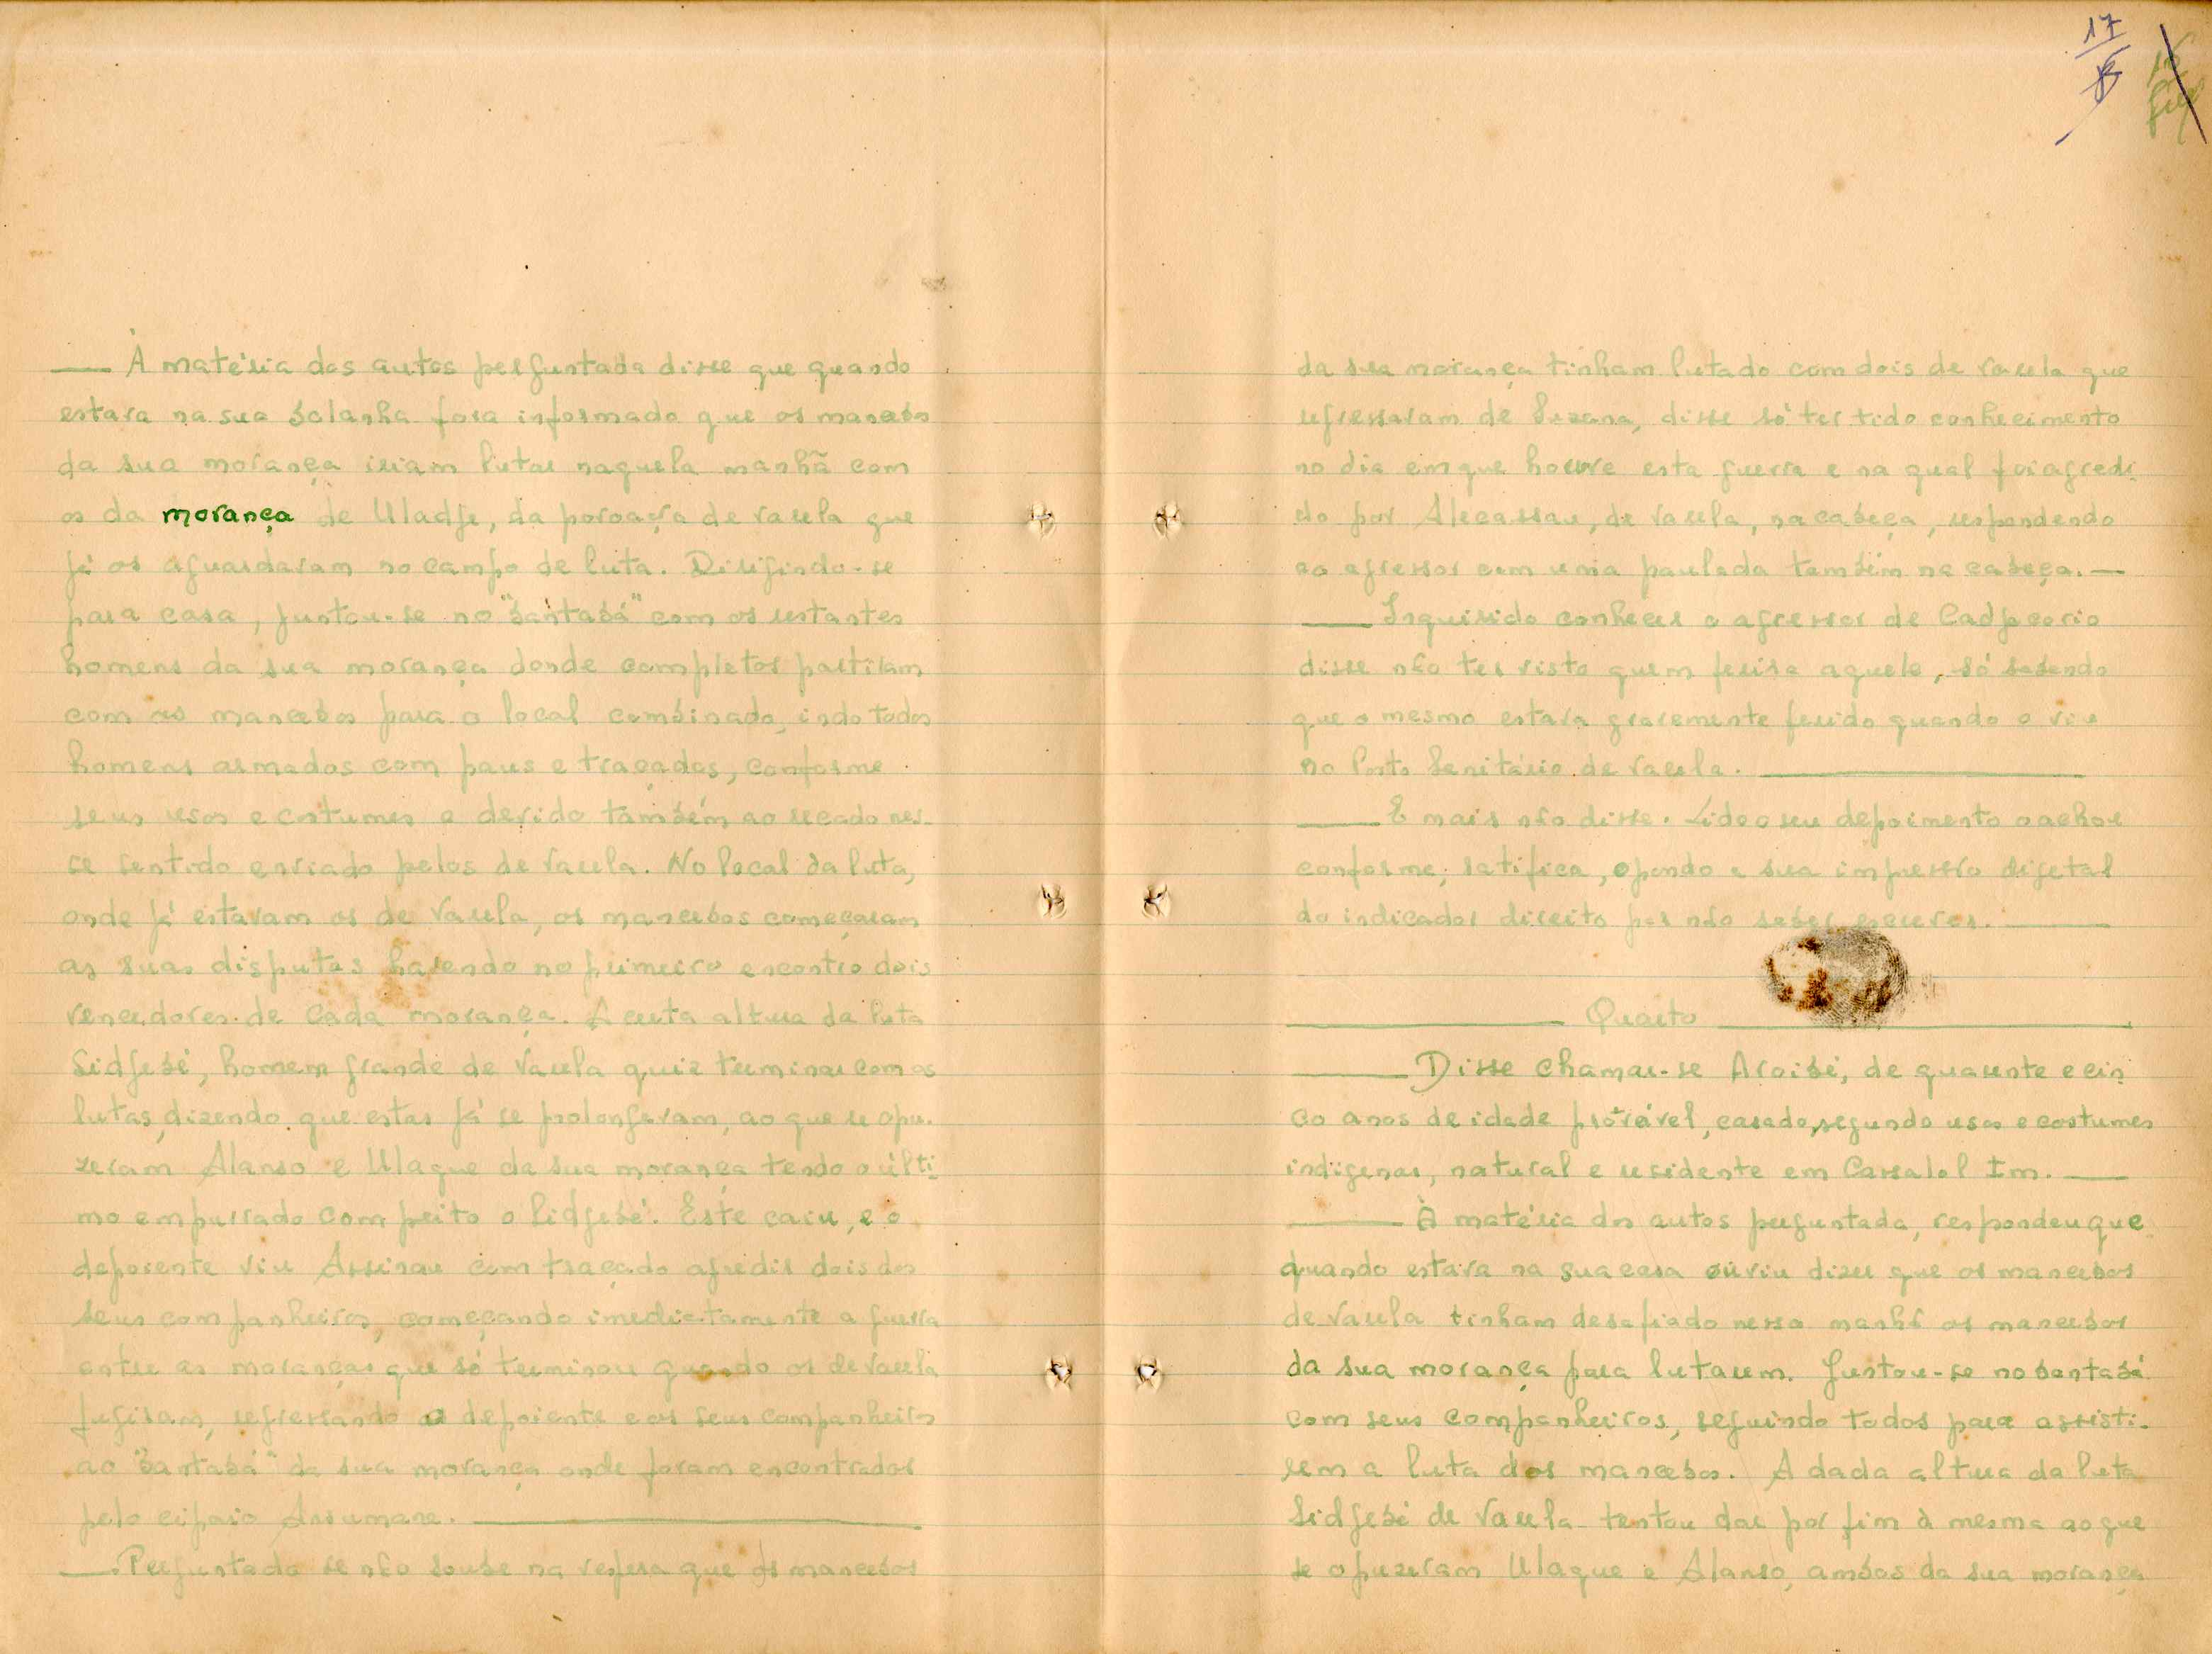 17
—— À matéria dos autos perguntada disse que quando
estava na sua bolanha fora informado que os mancebos
da sua morança iriam lutar naquela manhã com
os da morança de Uladje, da povoação de Varela que
já os aguardavam no campo de luta. Dirigindo-se
para casa, juntou-se no "bantabá" com os restantes
homens da sua morança donde completos partiram
com os mancebos para o local combinado, indo todos
homens armados com paus e traçados, conforme
seus usos e costumes e devido também ao recado nes-
se sentido enviado pelos de Varela. No local da luta,
onde já estavam os de Varela, os mancebos começaram
as suas disputas havendo no primeiro encontro dois
vencedores de cada morança. A certa altura da luta
Sidjebé, homem grande de Varela quiz terminar com as
lutas, dizendo que estas já se prolongavam, ao que se opu-
zeram Alanso e Ulaque da sua morança tendo o últi-
mo empurrado com peito o Sidjebé. Este caiu, e o
depoente viu Assinau com traçado agredir dois dos
seus companheiros, começando imediatamente a guerra
entre as moranças que só terminou quando os de Varela
fugiram, regressando o depoiente e os seus companheiros
ao "bantabá" da sua morança onde foram encontrados
pelo cipaio Ansumane. ——
—— Perguntado se não soube na vespera que os mancebos
da sua morança tinham lutado com dois de Varela que
regressaram de Suzana, disse só ter tido conhecimento
no dia em que houve esta guerra e na qual foi agredi-
do por Alecassau, de Varela, na cabeça, respondendo
ao agressor com uma paulada também na cabeça. —
—— Inquirido conhecer o agressor de Cadjocorio
disse não ter visto quem ferira aquele, só sabendo
que o mesmo estava gravemente ferido quando o viu
no Posto Sanitário de Varela. ——
—— E mais não disse. Lido o seu depoimento o achou
conforme, ratifica, opondo a sua impressão digetal
do indicador direito por não saber escrever. ——
—— Quarto ——
—— Disse chamar-se Aroibé, de quarente e cin-
co anos de idade próvável, casado, segundo usos e costumes
indigenas, natural e residente em Cassalol Im. ——
—— À matéria dos autos perguntada, respondeu que
quando estava na sua casa ouviu dizer que os mancebos
de Varela tinham desafiado nessa manhã os mancebos
da sua morança para lutarem. Juntou-se no bantabá
com seus companheiros, seguindo todos para assisti-
rem a luta dos mancebos. A dada altura da luta
Sidjebé de Varela tentou dar por fim à mesma ao que
se opuzeram Ulaque e Alanso, ambos da sua morança